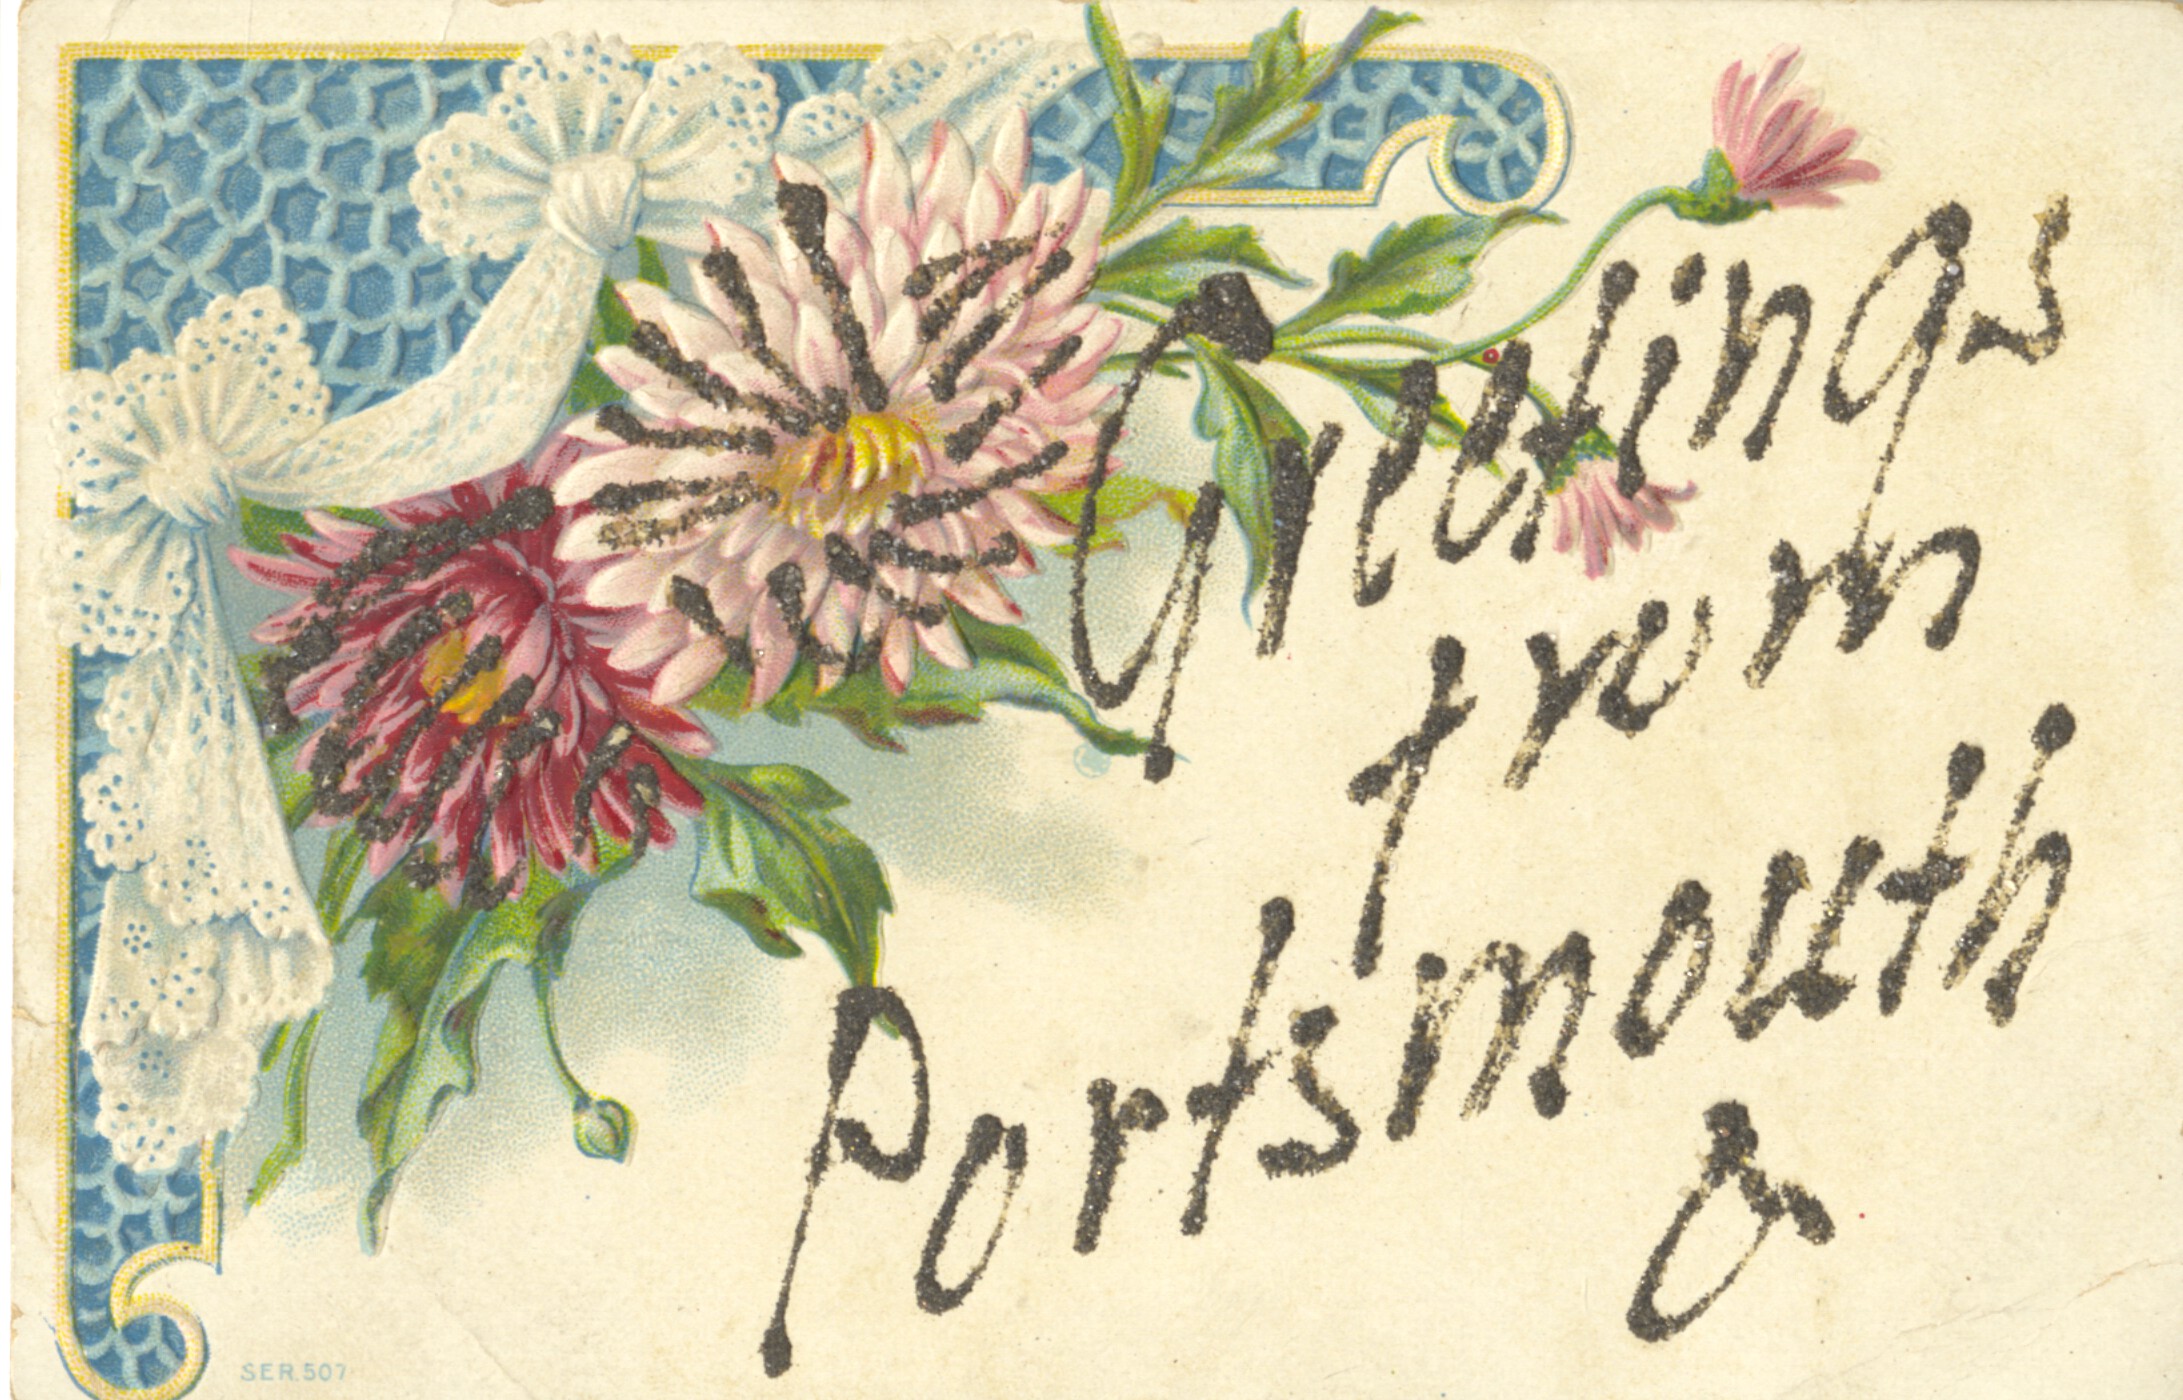 Greetings
from
Portsmouth
O
SER.507